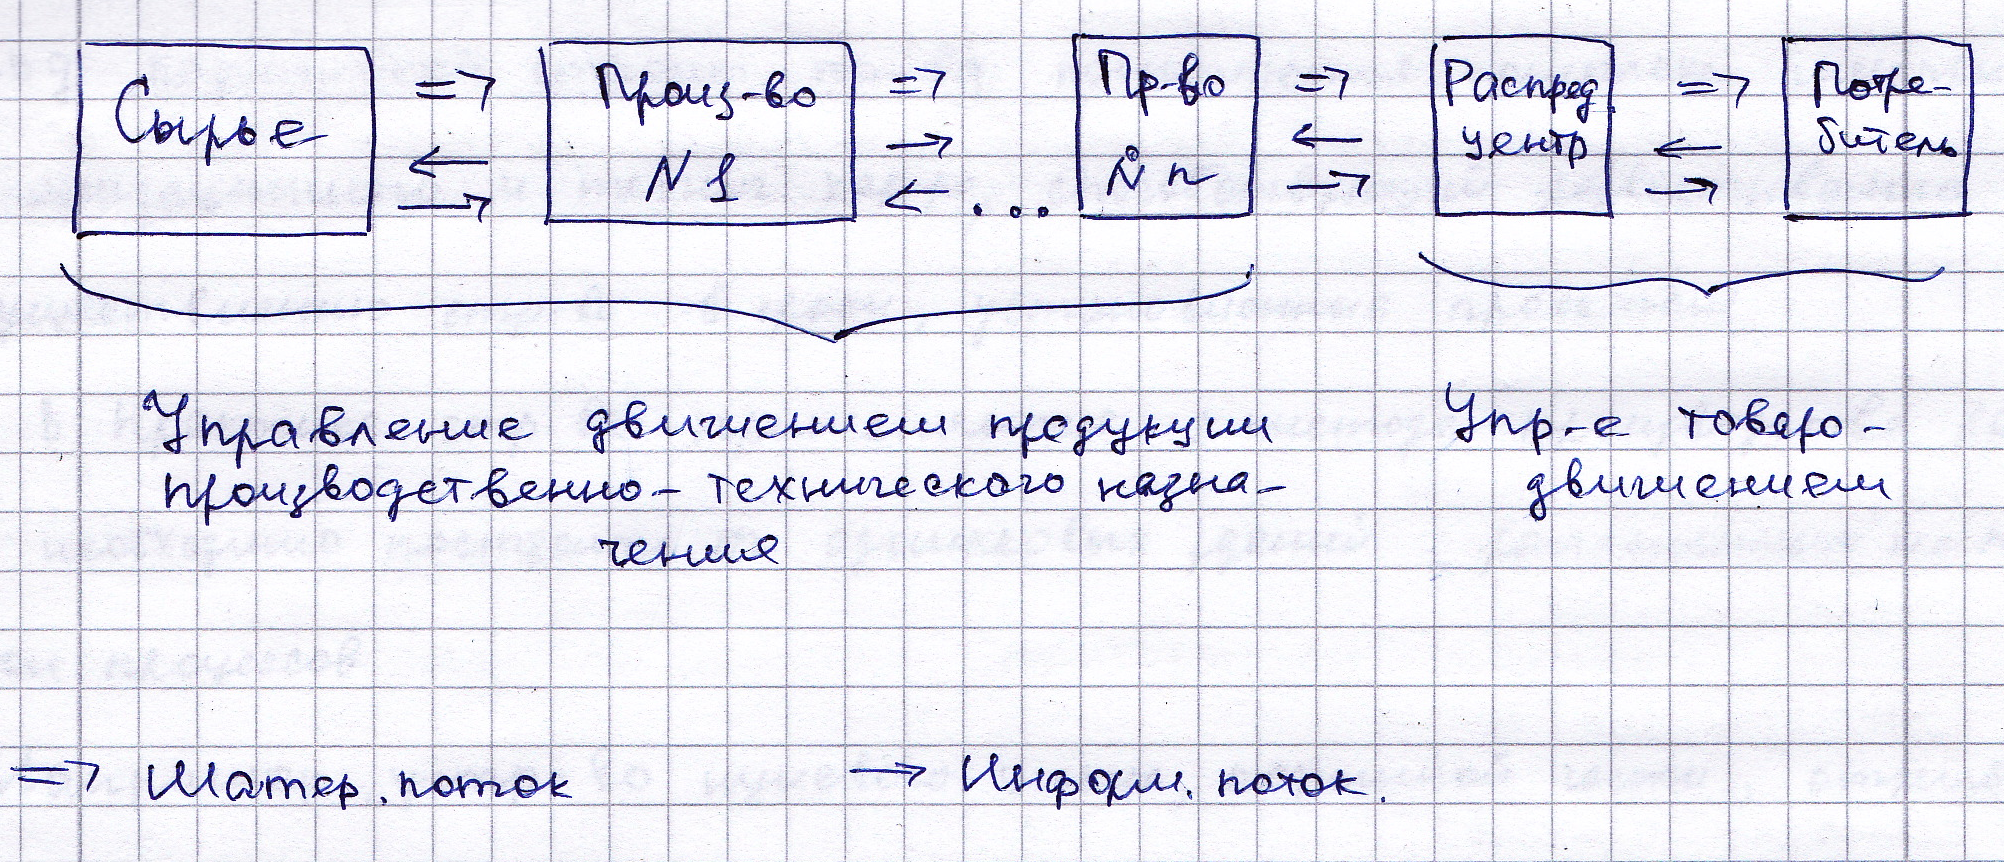 Сырье
⇒
←
→
Произ-во
N 1
⇒
→
← ...
Пр-во
№ n
⇒
←
→
Распред.
центр
⇒
←
→
Потре-
битель
Управление движением продукции
производственно-технического назна-
чения
Упр-е товаро-
движением
⇒ Матер. поток
→ Информ. поток.